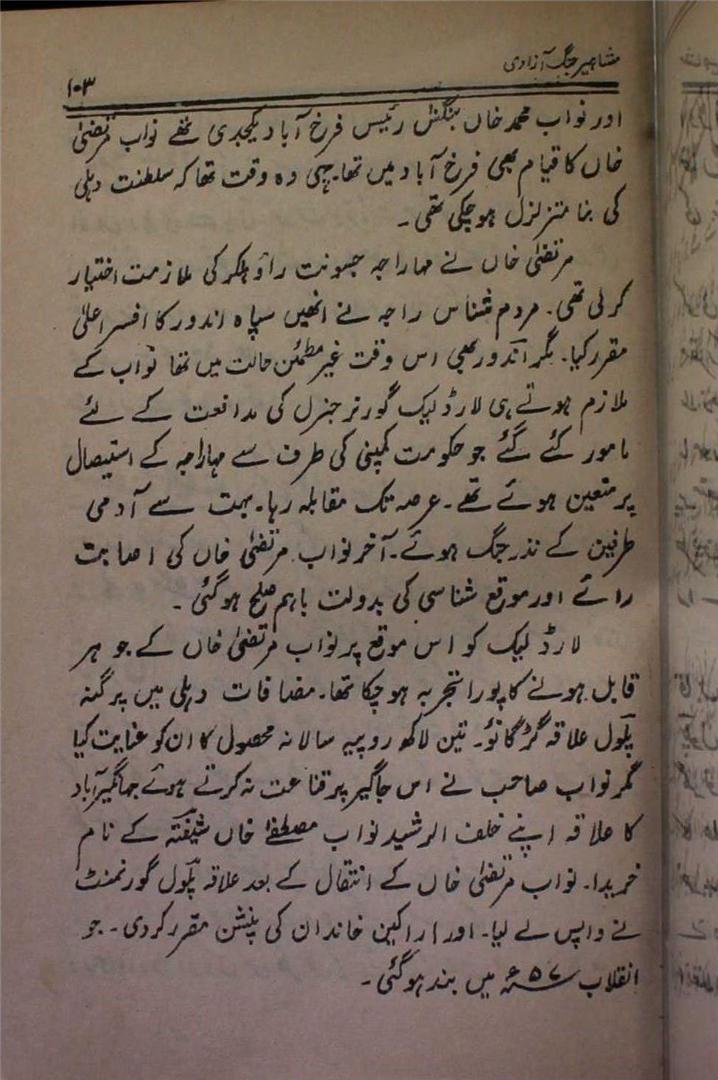 مشاہیر جنگ آزادی
۱۰۳
اور نواب محمد خاں بنگش رئیس فرخ آباد یکجدی تھے نواب مرتضیٰ
خاں کا قیام بھی فرخ آباد میں تھا۔ یہی وہ وقت تھا کہ سلطنت دہلی
کی بنا متزلزل ہوچکی تھی۔
مرتضیٰ خاں نے مہاراجہ جسونت راؤ ہلکر کی ملازمت اختیار
کرلی تھی۔ مردم شناس راجہ نے انھیں سپاہ اندور کا افسر اعلیٰ
مقرر کیا۔ مگر اندور بھی اس وقت غیر مطمئن حالت میں تھا نواب کے
ملازم ہوتے ہی لارڈ لیک گورنر جنرل کی مدافعت کے لئے
مامور کئے گئے جو حکومت کمپنی کی طرف سے مہاراجہ کے استیصال
پر متعین ہوئے تھے۔ عرصہ تک مقابلہ رہا۔ بہت سے آدمی
طرفین کے نذر جنگ ہوئے۔ آخر نواب مرتضیٰ خاں کی اصابت
رائے اور موقع شناسی کی بدولت باہم صلح ہوگئی۔
لارڈ لیک کو اس موقع پر نواب مرتضیٰ خاں کے جوہر
قابل ہونے کا پورا تجربہ ہوچکا تھا۔ مضافات دہلی میں پرگنہ
پلول علاقہ گڑگانؤ۔ تین لاکھ روپیہ سالانہ محصول کا ان کو عنایت کیا
مگر نواب صاحب نے اس جاگیر پر قناعت نہ کرتے ہوئے جہانگیر آباد
کا علاقہ اپنے خلف الرشید نواب مصطفےٰ خاں شیفتہ کے نام
خریدا۔ نواب مرتضیٰ خاں کے انتقال کے بعد علاقہ پلول گورنمنٹ
نے واپس لے لیا۔ اور اراکین خاندان کی پنشن مقرر کردی۔ جو
انقلاب ۵۷ء میں بند ہوگئی۔